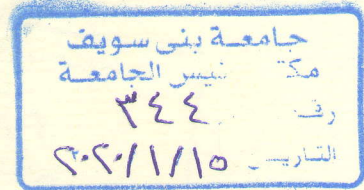 جامعة بنى سويف
مكتب رئيس الجامعة
رقم ٣٤٤
التاريخ ٢٠٢٠/١/١٥